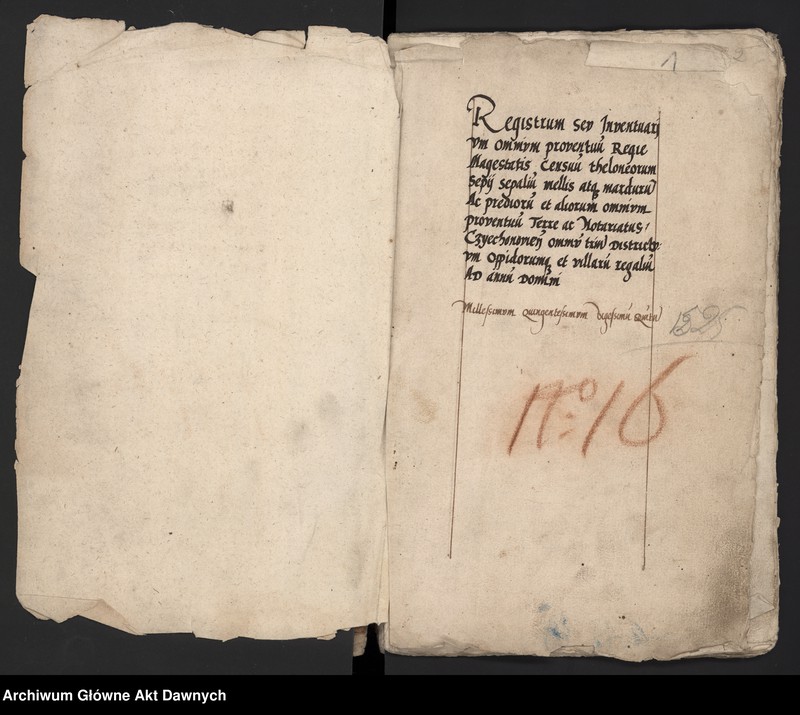 1
Registrum sev Inventuarj
vm omnivm proventuū Regie
Magestatis Censuū theloneorum
sepij sepaliū mellis atq mardurū
Ac prediorū et aliorum omnivm
proventuū Terre ac Notariatus
Czyechonovieñ omnū triū Districtv
vm oppidorumq et villarū regaliū
AD annū Domini
Millessimvm Quingentesimvm vigesimū Quintū
1525
No 16
Archiwum Główne Akt Dawnych